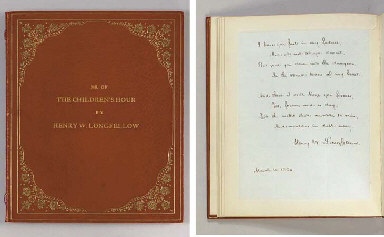 MS. OF
THE CHILDREN'S HOUR
BY
HENRY W. LONGFELLOW
I have you fast in my fortress,
And will not let you depart,
But put you down into the dungeon
In the round-tower of my heart.
And there I will keep you forever,
Yes, forever and a day,
Till the walls shall crumble to ruin,
And moulder in dust away.
Henry W. Longfellow.
March 10